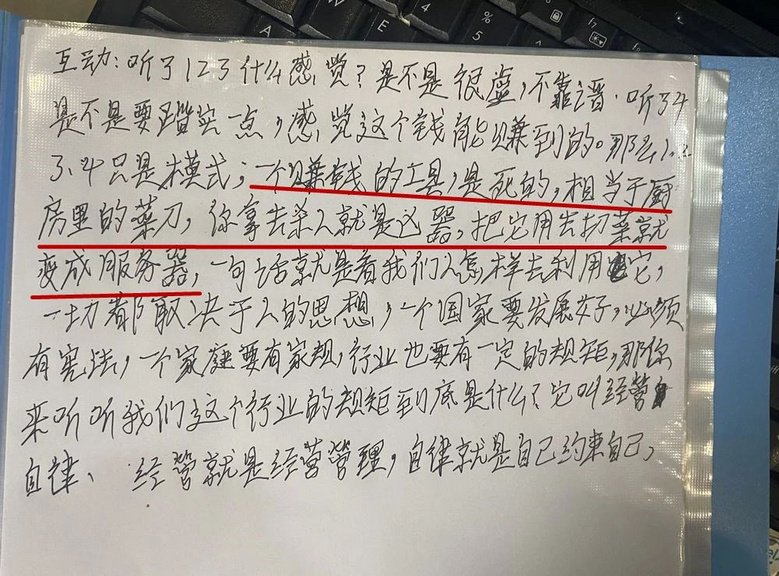 互动：听了123什么感觉？是不是很虚，不靠谱．听了4
是不是要踏实一点，感觉这个钱能赚到的。那么1.2
3.4只是模式；一个赚钱的工具，是死的，相当于厨
房里的菜刀，你拿去杀人就是凶器，把它用去切菜就
变成服务器，一句话就是看我们人怎样去利用它，
一切都取决于人的思想，一个国家要发展好，必须
有宪法，一个家庭要有家规，行业也要有一定的规矩，那你
来听听我们这个行业的规矩到底是什么？它叫经营
自律、经营就是经营管理，自律就是自己约束自己，